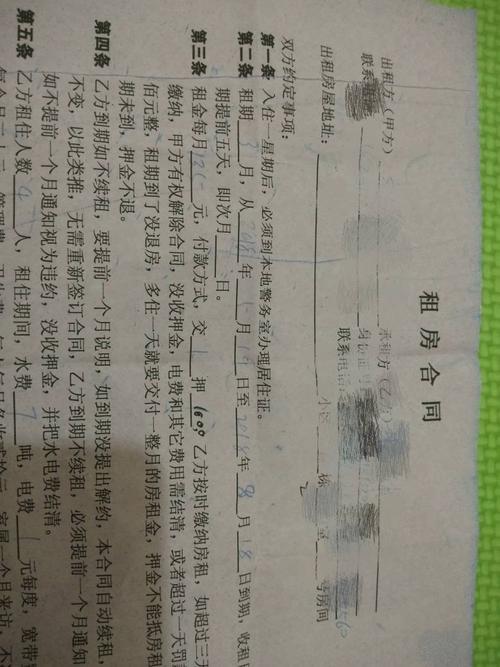 租房合同
出租方（甲方） 承租方（乙方）
联系 身份证 联系电话
出租房屋地址： 小区 栋 室 号房间
双方约定事项：
第一条 入住一星期后，必须到本地警务室办理居住证。
第二条 租期 3 月，从 年 月 日至 2018 年 8 月 18 日到期，收租日
期提前五天，即次月 日。
第三条 租金每月 元，付款方式，交 1 押 1600 乙方按时缴纳房租，如超过三天
缴纳，甲方有权解除合同，没收押金，电费和其它费用需结清，或者超过一天罚
佰元整，租期到了没退房，多住一天就要交付一整月的房租金，押金不能抵房租
期未到，押金不退。
第四条 乙方到期如不续租，要提前一个月说明，如到期没提出解约，本合同自动续租，
不变，以此类推，无需重新签订合同，乙方到期不续租，必须提前一个月通知
如不提前一个月通知视为违约，没收押金，并把水电费结清。
第五条 乙方租住人数 人，租住期间，水费 7 吨，电费 1 元每度，宽带